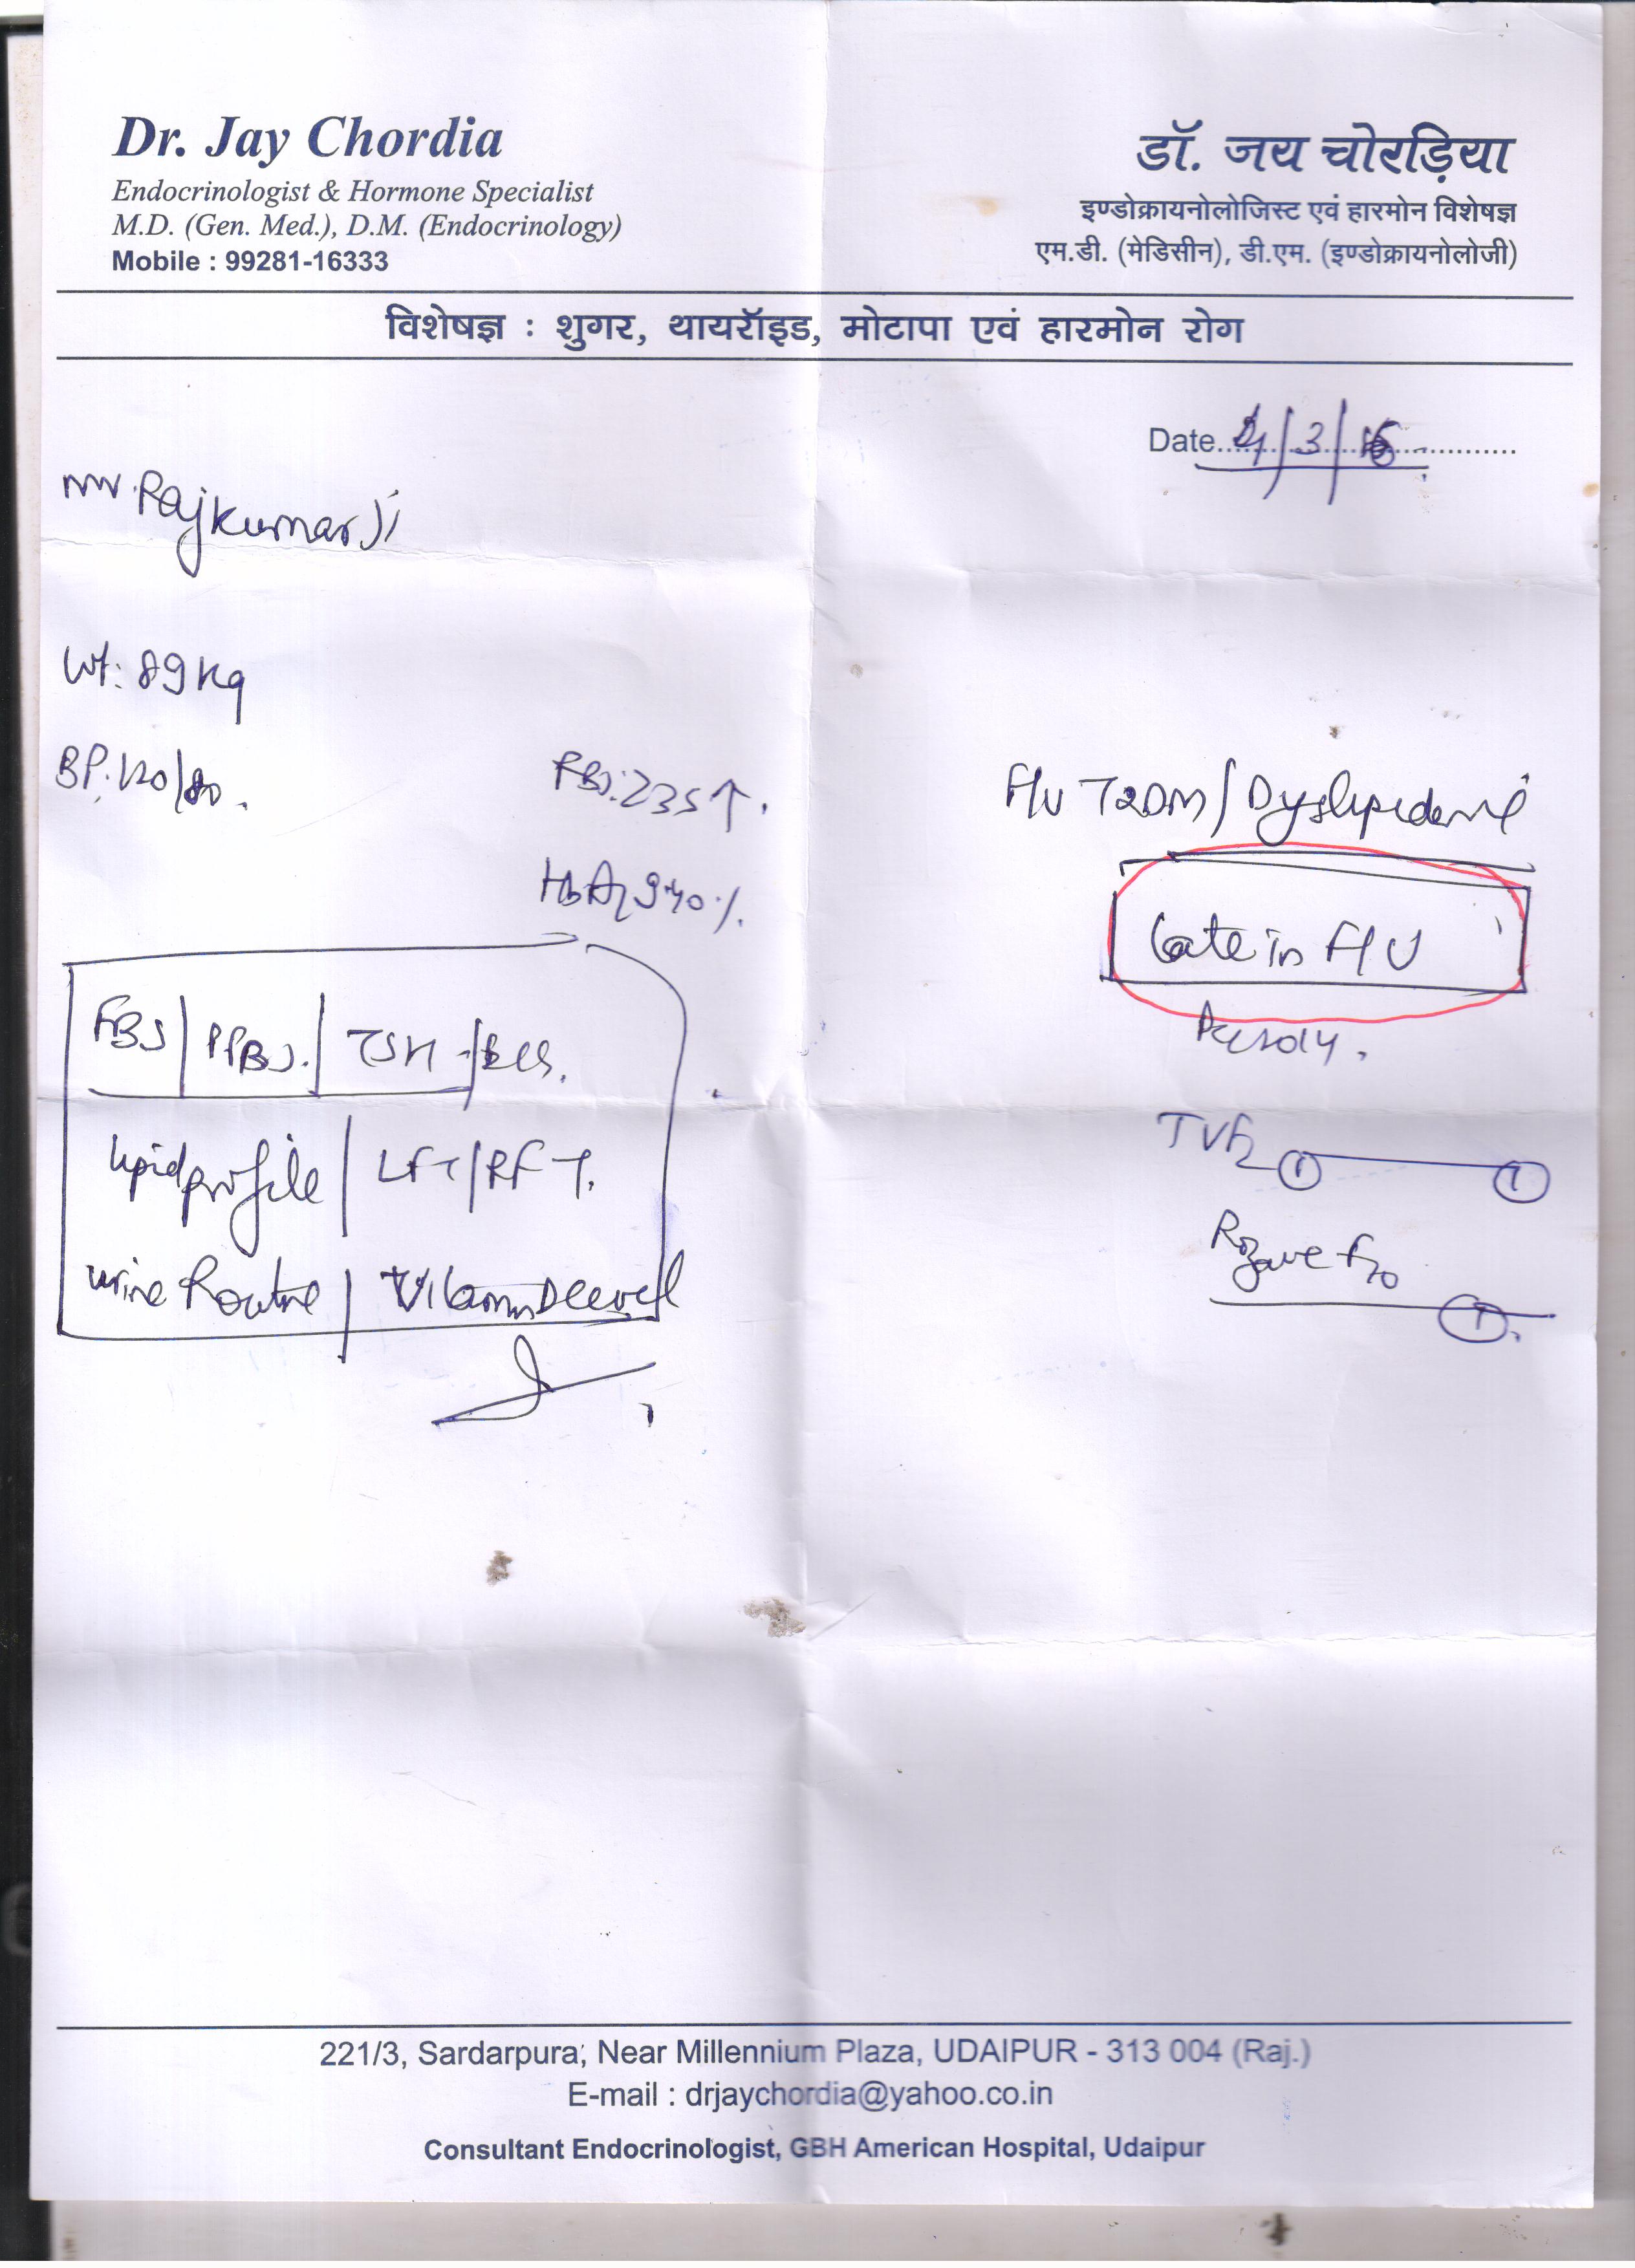 Dr. Jay Chordia
Endocrinologist & Hormone Specialist
M.D. (Gen. Med.), D.M. (Endocrinology)
Mobile : 99281-16333
डॉ. जय चोरड़िया
इण्डोक्रायनोलोजिस्ट एवं हारमोन विशेषज्ञ
एम.डी. (मेडिसीन), डी.एम. (इण्डोक्रायनोलोजी)
विशेषज्ञ : शुगर, थायरॉइड, मोटापा एवं हारमोन रोग
Date /3/
Mr. Rajkumar Ji
Wt: 89 kg
BP: 120/80.
FBS: 235 ↑.
HbA1c 9.40%.
F/U T2DM / Dyslipidemi
Late in F/U
FBS / PPBS. / TSH /
Lipid profile / LFT / RFT.
Urine Routine / Vitamin D level
① ①
Rozave F20
①.
221/3, Sardarpura, Near Millennium Plaza, UDAIPUR - 313 004 (Raj.)
E-mail : drjaychordia@yahoo.co.in
Consultant Endocrinologist, GBH American Hospital, Udaipur